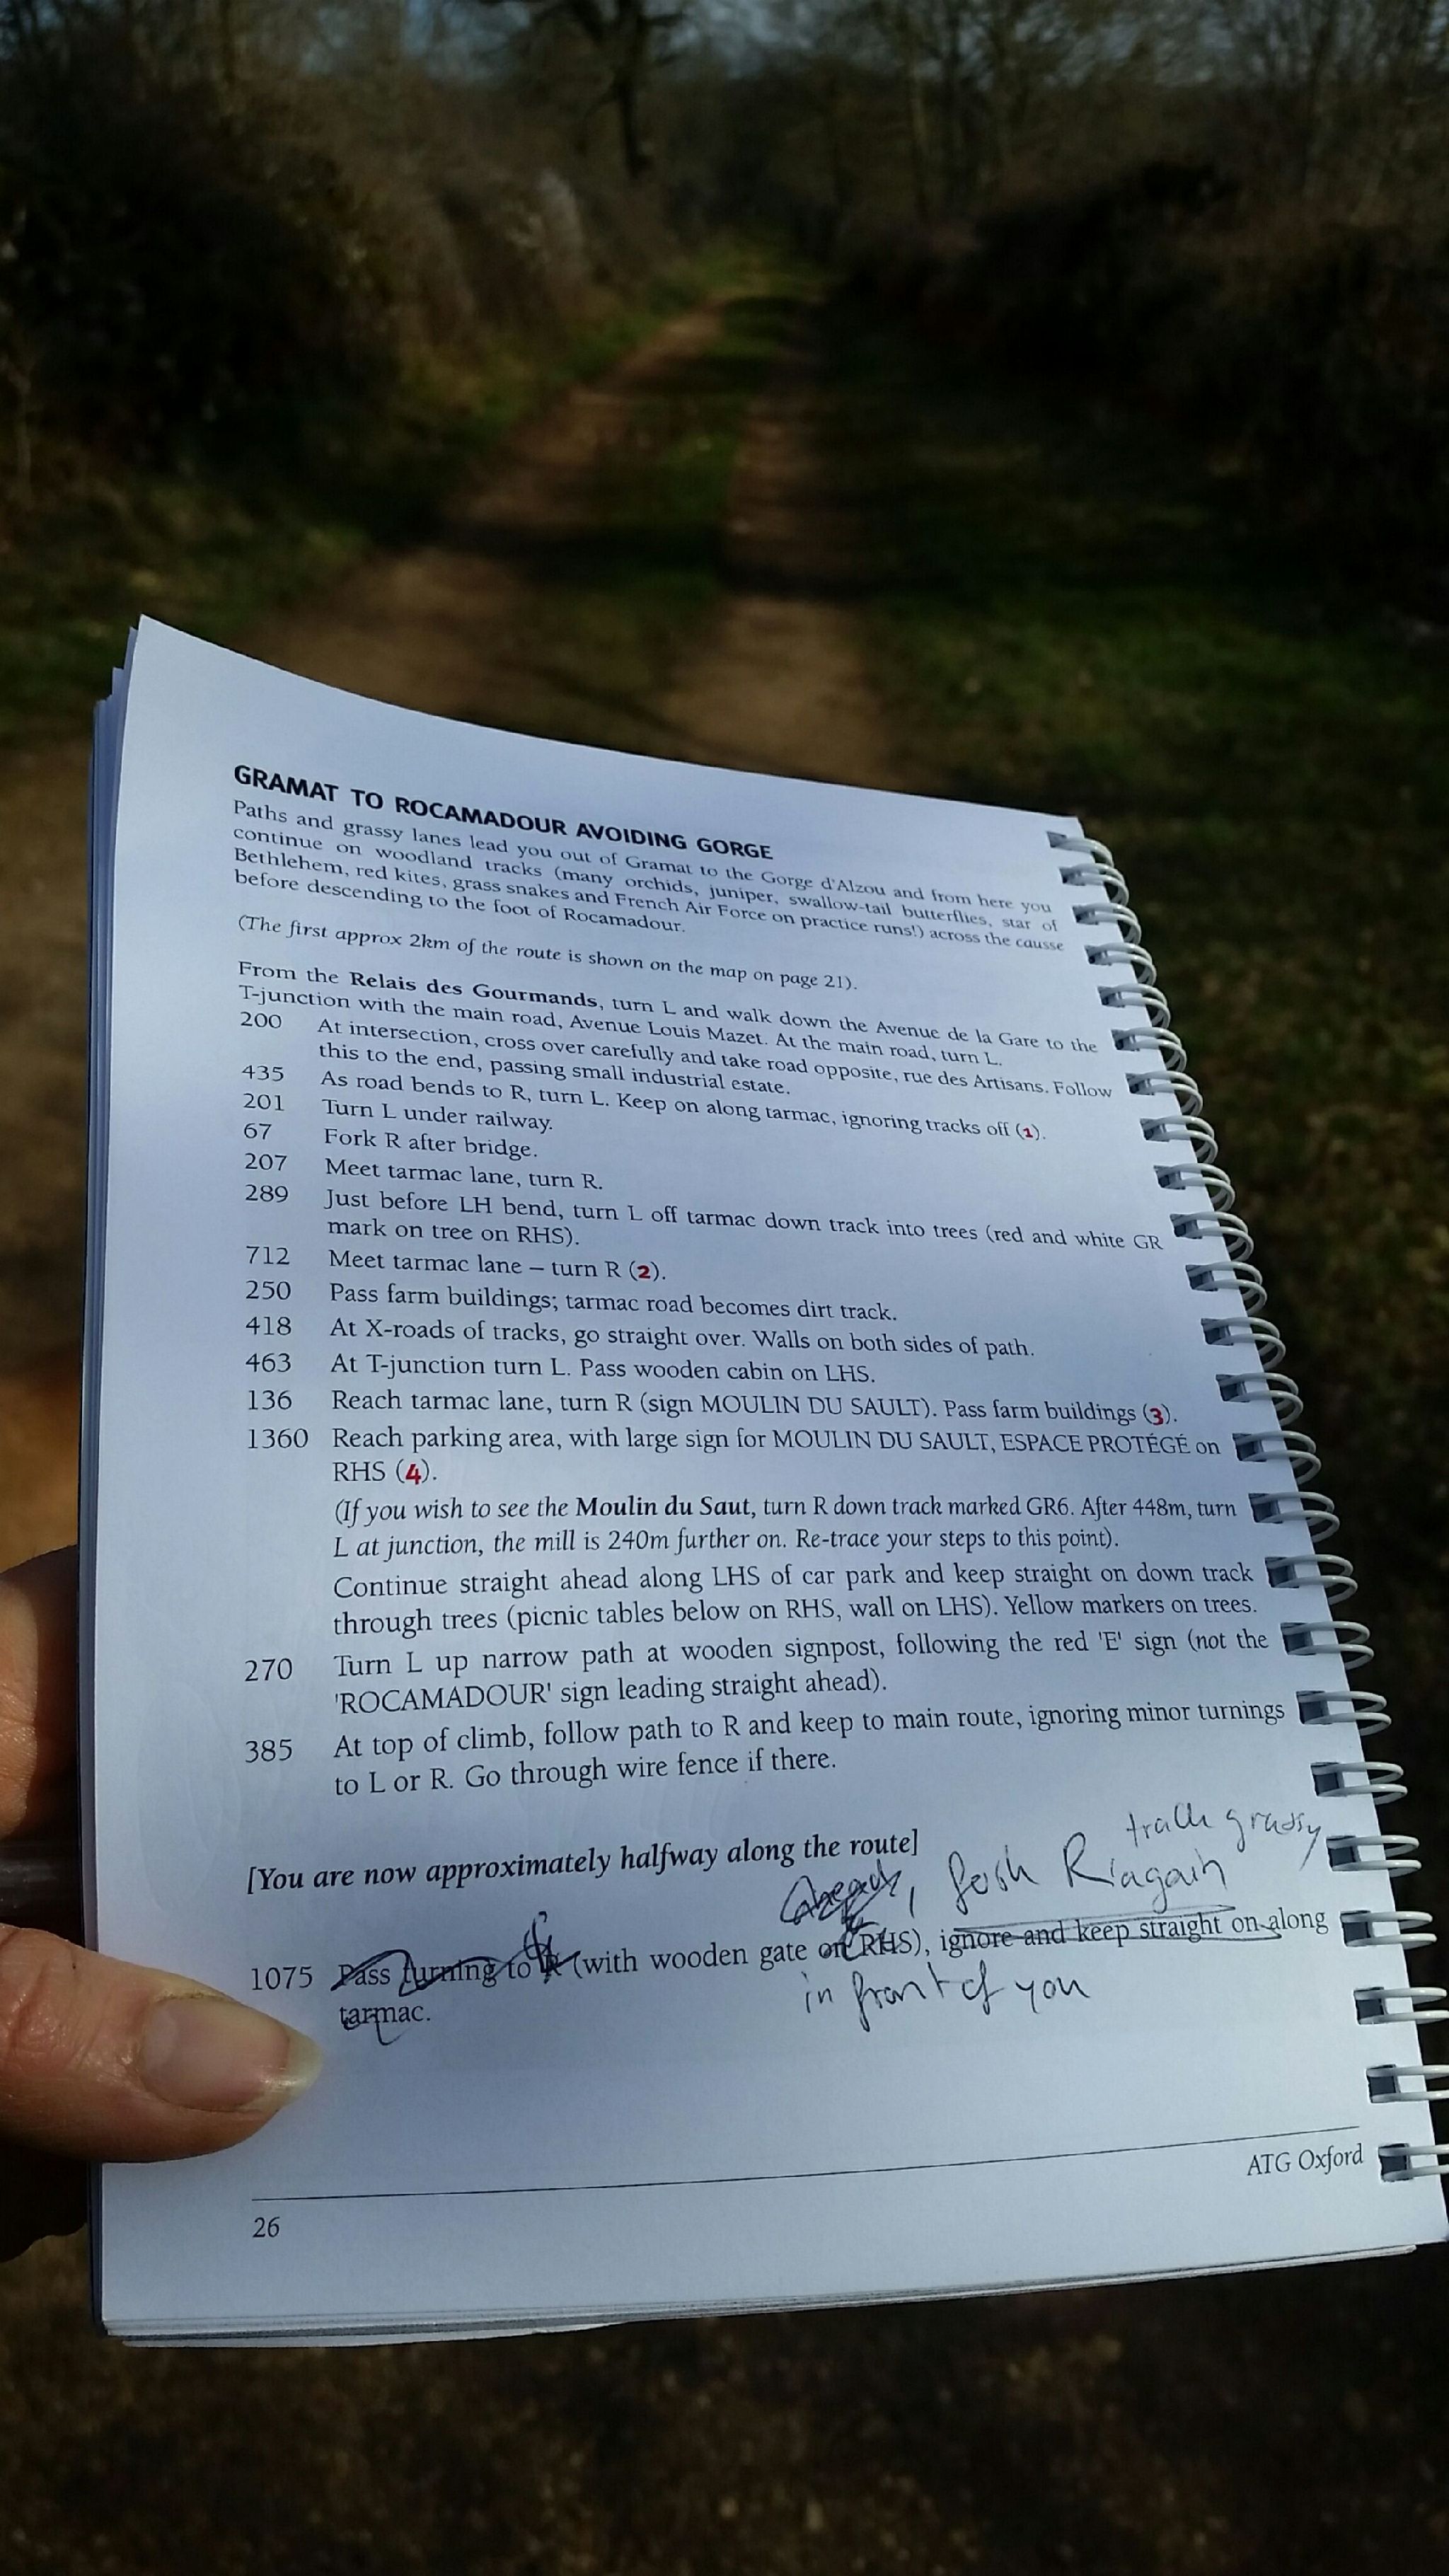 GRAMAT TO ROCAMADOUR AVOIDING GORGE
Paths and grassy lanes lead you out of Gramat to the Gorge d'Alzou and from here you
continue on woodland tracks (many orchids, juniper, swallow-tail butterflies, star of
Bethlehem, red kites, grass snakes and French Air Force on practice runs!) across the causse
before descending to the foot of Rocamadour.
(The first approx 2km of the route is shown on the map on page 21).
From the Relais des Gourmands, turn L and walk down the Avenue de la Gare to the
T-junction with the main road, Avenue Louis Mazet. At the main road, turn L.
200 At intersection, cross over carefully and take road opposite, rue des Artisans. Follow
this to the end, passing small industrial estate.
435 As road bends to R, turn L. Keep on along tarmac, ignoring tracks off (1).
201 Turn L under railway.
67 Fork R after bridge.
207 Meet tarmac lane, turn R.
289 Just before LH bend, turn L off tarmac down track into trees (red and white GR
mark on tree on RHS).
712 Meet tarmac lane – turn R (2).
250 Pass farm buildings; tarmac road becomes dirt track.
418 At X-roads of tracks, go straight over. Walls on both sides of path.
463 At T-junction turn L. Pass wooden cabin on LHS.
136 Reach tarmac lane, turn R (sign MOULIN DU SAULT). Pass farm buildings (3).
1360 Reach parking area, with large sign for MOULIN DU SAULT, ESPACE PROTÉGÉ on
RHS (4).
(If you wish to see the Moulin du Saut, turn R down track marked GR6. After 448m, turn
L at junction, the mill is 240m further on. Re-trace your steps to this point).
Continue straight ahead along LHS of car park and keep straight on down track
through trees (picnic tables below on RHS, wall on LHS). Yellow markers on trees.
270 Turn L up narrow path at wooden signpost, following the red 'E' sign (not the
'ROCAMADOUR' sign leading straight ahead).
385 At top of climb, follow path to R and keep to main route, ignoring minor turnings
to L or R. Go through wire fence if there.
[You are now approximately halfway along the route]
track grassy
R again
1075 Pass turning to R (with wooden gate on RHS), ignore and keep straight on along
in front of you
tarmac.
ATG Oxford
26